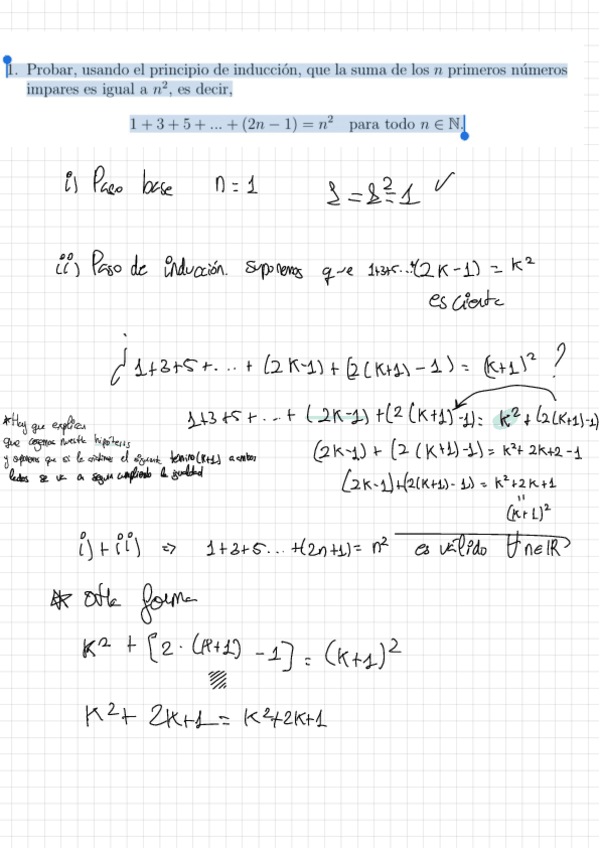 1. Probar, usando el principio de inducción, que la suma de los n primeros números
impares es igual a n², es decir,
1 + 3 + 5 + ... + (2n − 1) = n² para todo n ∈ ℕ.
i) Paso base n = 1 1 = 1² = 1 ✓
ii) Paso de inducción. Suponemos que 1+3+5...+(2K-1) = K²
es cierto
¿ 1+3+5+...+(2K-1)+(2(K+1)-1) = (K+1)² ?
1+3+5+...+(2K-1)+(2(K+1)-1) = K²+(2(K+1)-1)
*Hay que explicar
que cogemos nuestra hipótesis
y que si le el siguiente termino (K+1) a ambos
lados se va a seguir cumpliendo la igualdad
(2K-1)+(2(K+1)-1) = K²+2K+2-1
(2K-1)+(2(K+1)-1) = K²+2K+1
=
(K+1)²
i)+ii) ⇒ 1+3+5...+(2n+1) = n² es válido ∀n∈ℝ
* otra forma
K² + [2·(K+1) -1] = (K+1)²
K² + 2K+1 = K²+2K+1